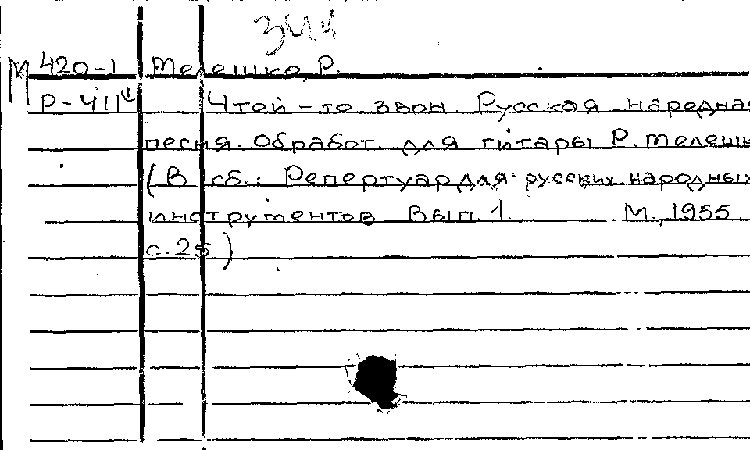 М 420-1 Мелешко, Р.
Р-411 Чтой-то звон. Русская народная
песня. Обработ. для гитары Р. Мелешк
(В сб.: Репертуар для русских народных
инструментов Вып. 1. М., 1955
с. 25)